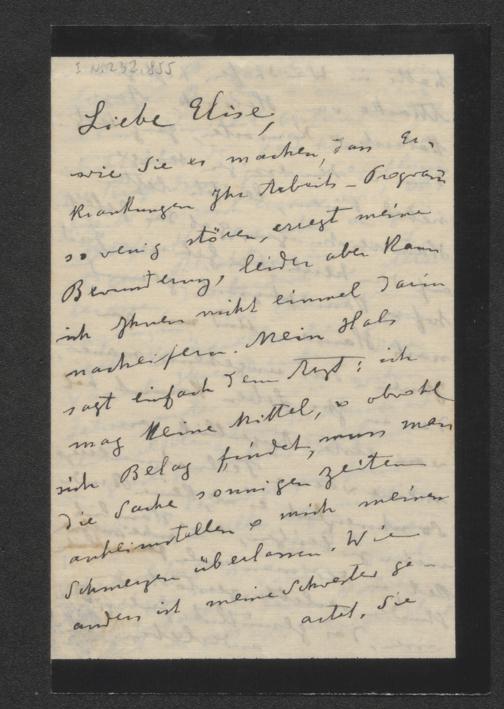 I.N.232.855
Liebe Elise,
wie Sie es machen, dass Er-
krankungen Ihr Arbeits-Program
so wenig stören, erregt meine
Bewunderung, leider aber kann
ich Ihnen nicht einmal darin
nacheifern. Mein Hals
sagt einfach dem Arzt: ich
mag keine Mittel, & obwohl
sich Belag findet, muss man
die Sache sonnigen Zeiten
anheimstellen & mich meinen
Schmerzen überlassen. Wie
anders ist meine Schwester ge-
artet. Sie